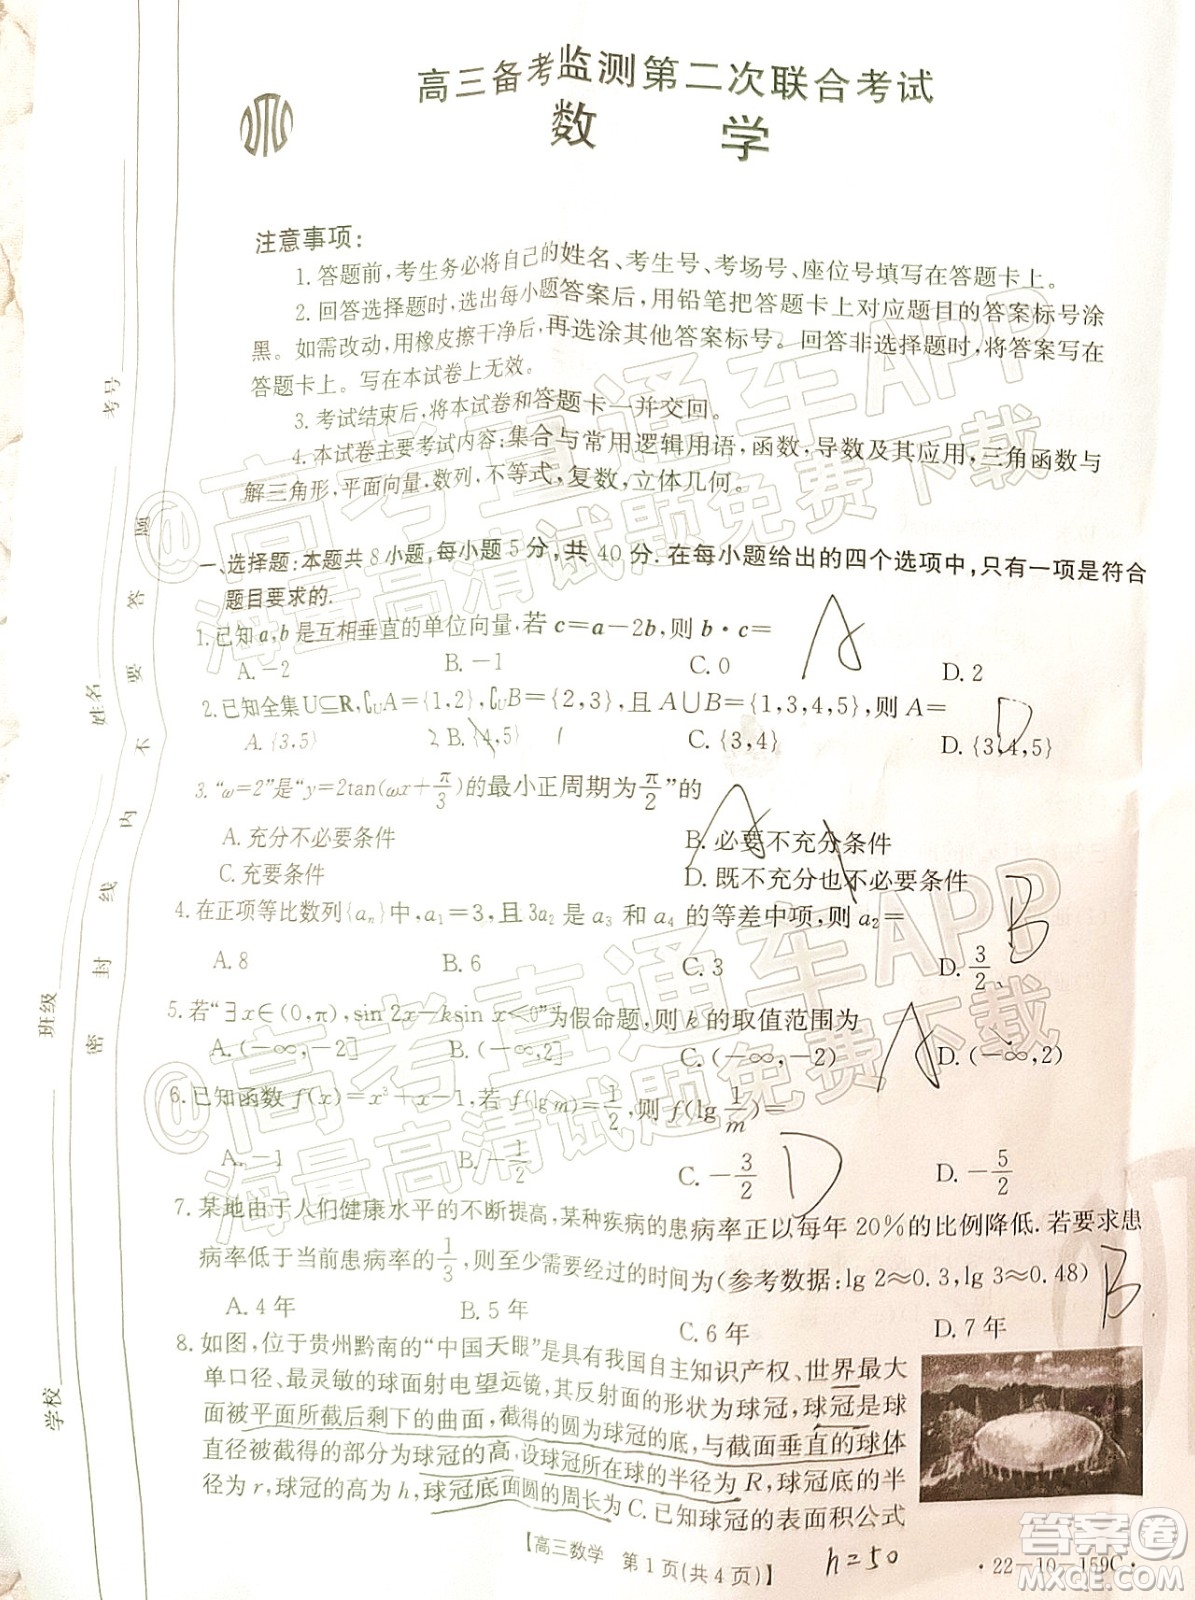 高三备考监测第二次联合考试
数 学
注意事项:
1. 答题前,考生务必将自己的姓名、考生号、考场号、座位号填写在答题卡上。
2. 回答选择题时,选出每小题答案后,用铅笔把答题卡上对应题目的答案标号涂
黑。如需改动,用橡皮擦干净后,再选涂其他答案标号。回答非选择题时,将答案写在
答题卡上。写在本试卷上无效。
3. 考试结束后,将本试卷和答题卡一并交回。
4. 本试卷主要考试内容:集合与常用逻辑用语,函数,导数及其应用,三角函数与
解三角形,平面向量,数列,不等式,复数,立体几何。
一、选择题:本题共 8 小题,每小题 5 分,共 40 分. 在每小题给出的四个选项中,只有一项是符合
题目要求的.
1. 已知 a,b 是互相垂直的单位向量,若 c=a-2b,则 b·c= A
A. -2 B. -1 C. 0 D. 2
2. 已知全集 U⊆R,∁UA={1,2},∁UB={2,3},且 A∪B={1,3,4,5},则 A= D
A. {3,5} B. {4,5} C. {3,4} D. {3,4,5}
3. “ω=2”是“y=2tan(ωx+π/3)的最小正周期为π/2”的 A
A. 充分不必要条件 B. 必要不充分条件
C. 充要条件 D. 既不充分也不必要条件
4. 在正项等比数列{aₙ}中,a₁=3,且 3a₂ 是 a₃ 和 a₄ 的等差中项,则 a₂= B
A. 8 B. 6 C. 3 D. 3/2
5. 若“∃x∈(0,π),sin 2x-ksin x<0”为假命题,则 k 的取值范围为 A
A. (-∞,-2] B. (-∞,2] C. (-∞,-2) D. (-∞,2)
6. 已知函数 f(x)=x³+x-1,若 f(lg m)=1/2,则 f(lg 1/m)=
A. -1 B. -1/2 C. -3/2 D. -5/2
D
7. 某地由于人们健康水平的不断提高,某种疾病的患病率正以每年 20%的比例降低. 若要求患
病率低于当前患病率的1/3,则至少需要经过的时间为(参考数据:lg 2≈0.3,lg 3≈0.48) B
A. 4 年 B. 5 年 C. 6 年 D. 7 年
8. 如图,位于贵州黔南的“中国天眼”是具有我国自主知识产权、世界最大
单口径、最灵敏的球面射电望远镜,其反射面的形状为球冠,球冠是球
面被平面所截后剩下的曲面,截得的圆为球冠的底,与截面垂直的球体
直径被截得的部分为球冠的高,设球冠所在球的半径为 R,球冠底的半
径为 r,球冠的高为 h,球冠底面圆的周长为 C. 已知球冠的表面积公式
h=50
【高三数学 第 1 页(共 4 页)】
·22-10-159C·
学校
班级
姓名
考号
密 封 线 内 不 要 答 题
@高考直通车APP
海量高清试题免费下载
@高考直通车APP
海量高清试题免费下载
答案圈
MXQE.COM